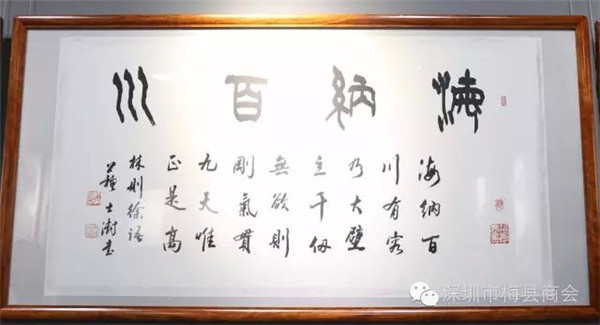 海納百川
海納百
川有容
乃大壁
立千仞
無欲則
剛氣貫
九天唯
正是高
林則徐語
士澍書
深圳市梅县商会